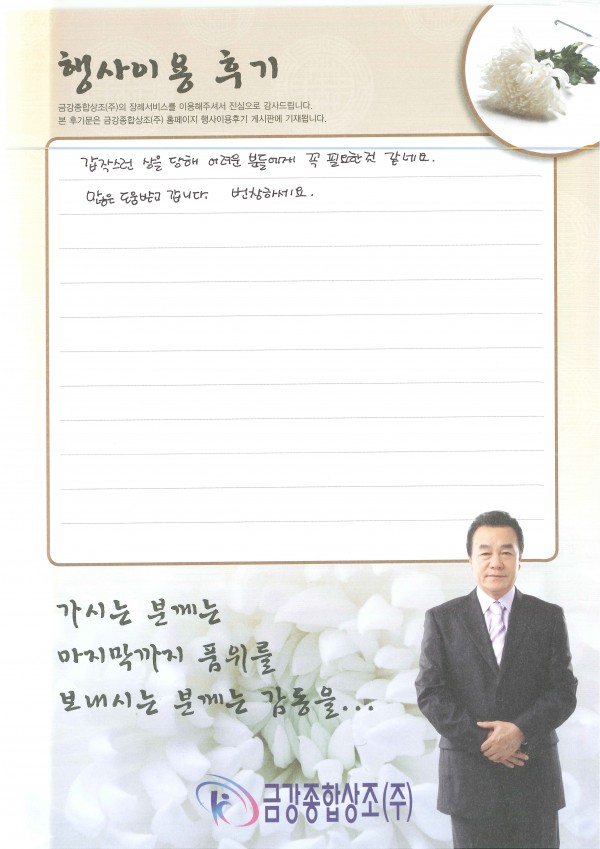 행사이용 후기
금강종합상조(주)의 장례서비스를 이용해주셔서 진심으로 감사드립니다.
본 후기문은 금강종합상조(주) 홈페이지 행사이용후기 게시판에 기재됩니다.
갑작스런 상을 당해 어려운 분들에게 꼭 필요한것 같네요.
많은 도움받고 갑니다. 번창하세요.
가시는 분께는
마지막까지 품위를
보내시는 분께는 감동을...
금강종합상조(주)